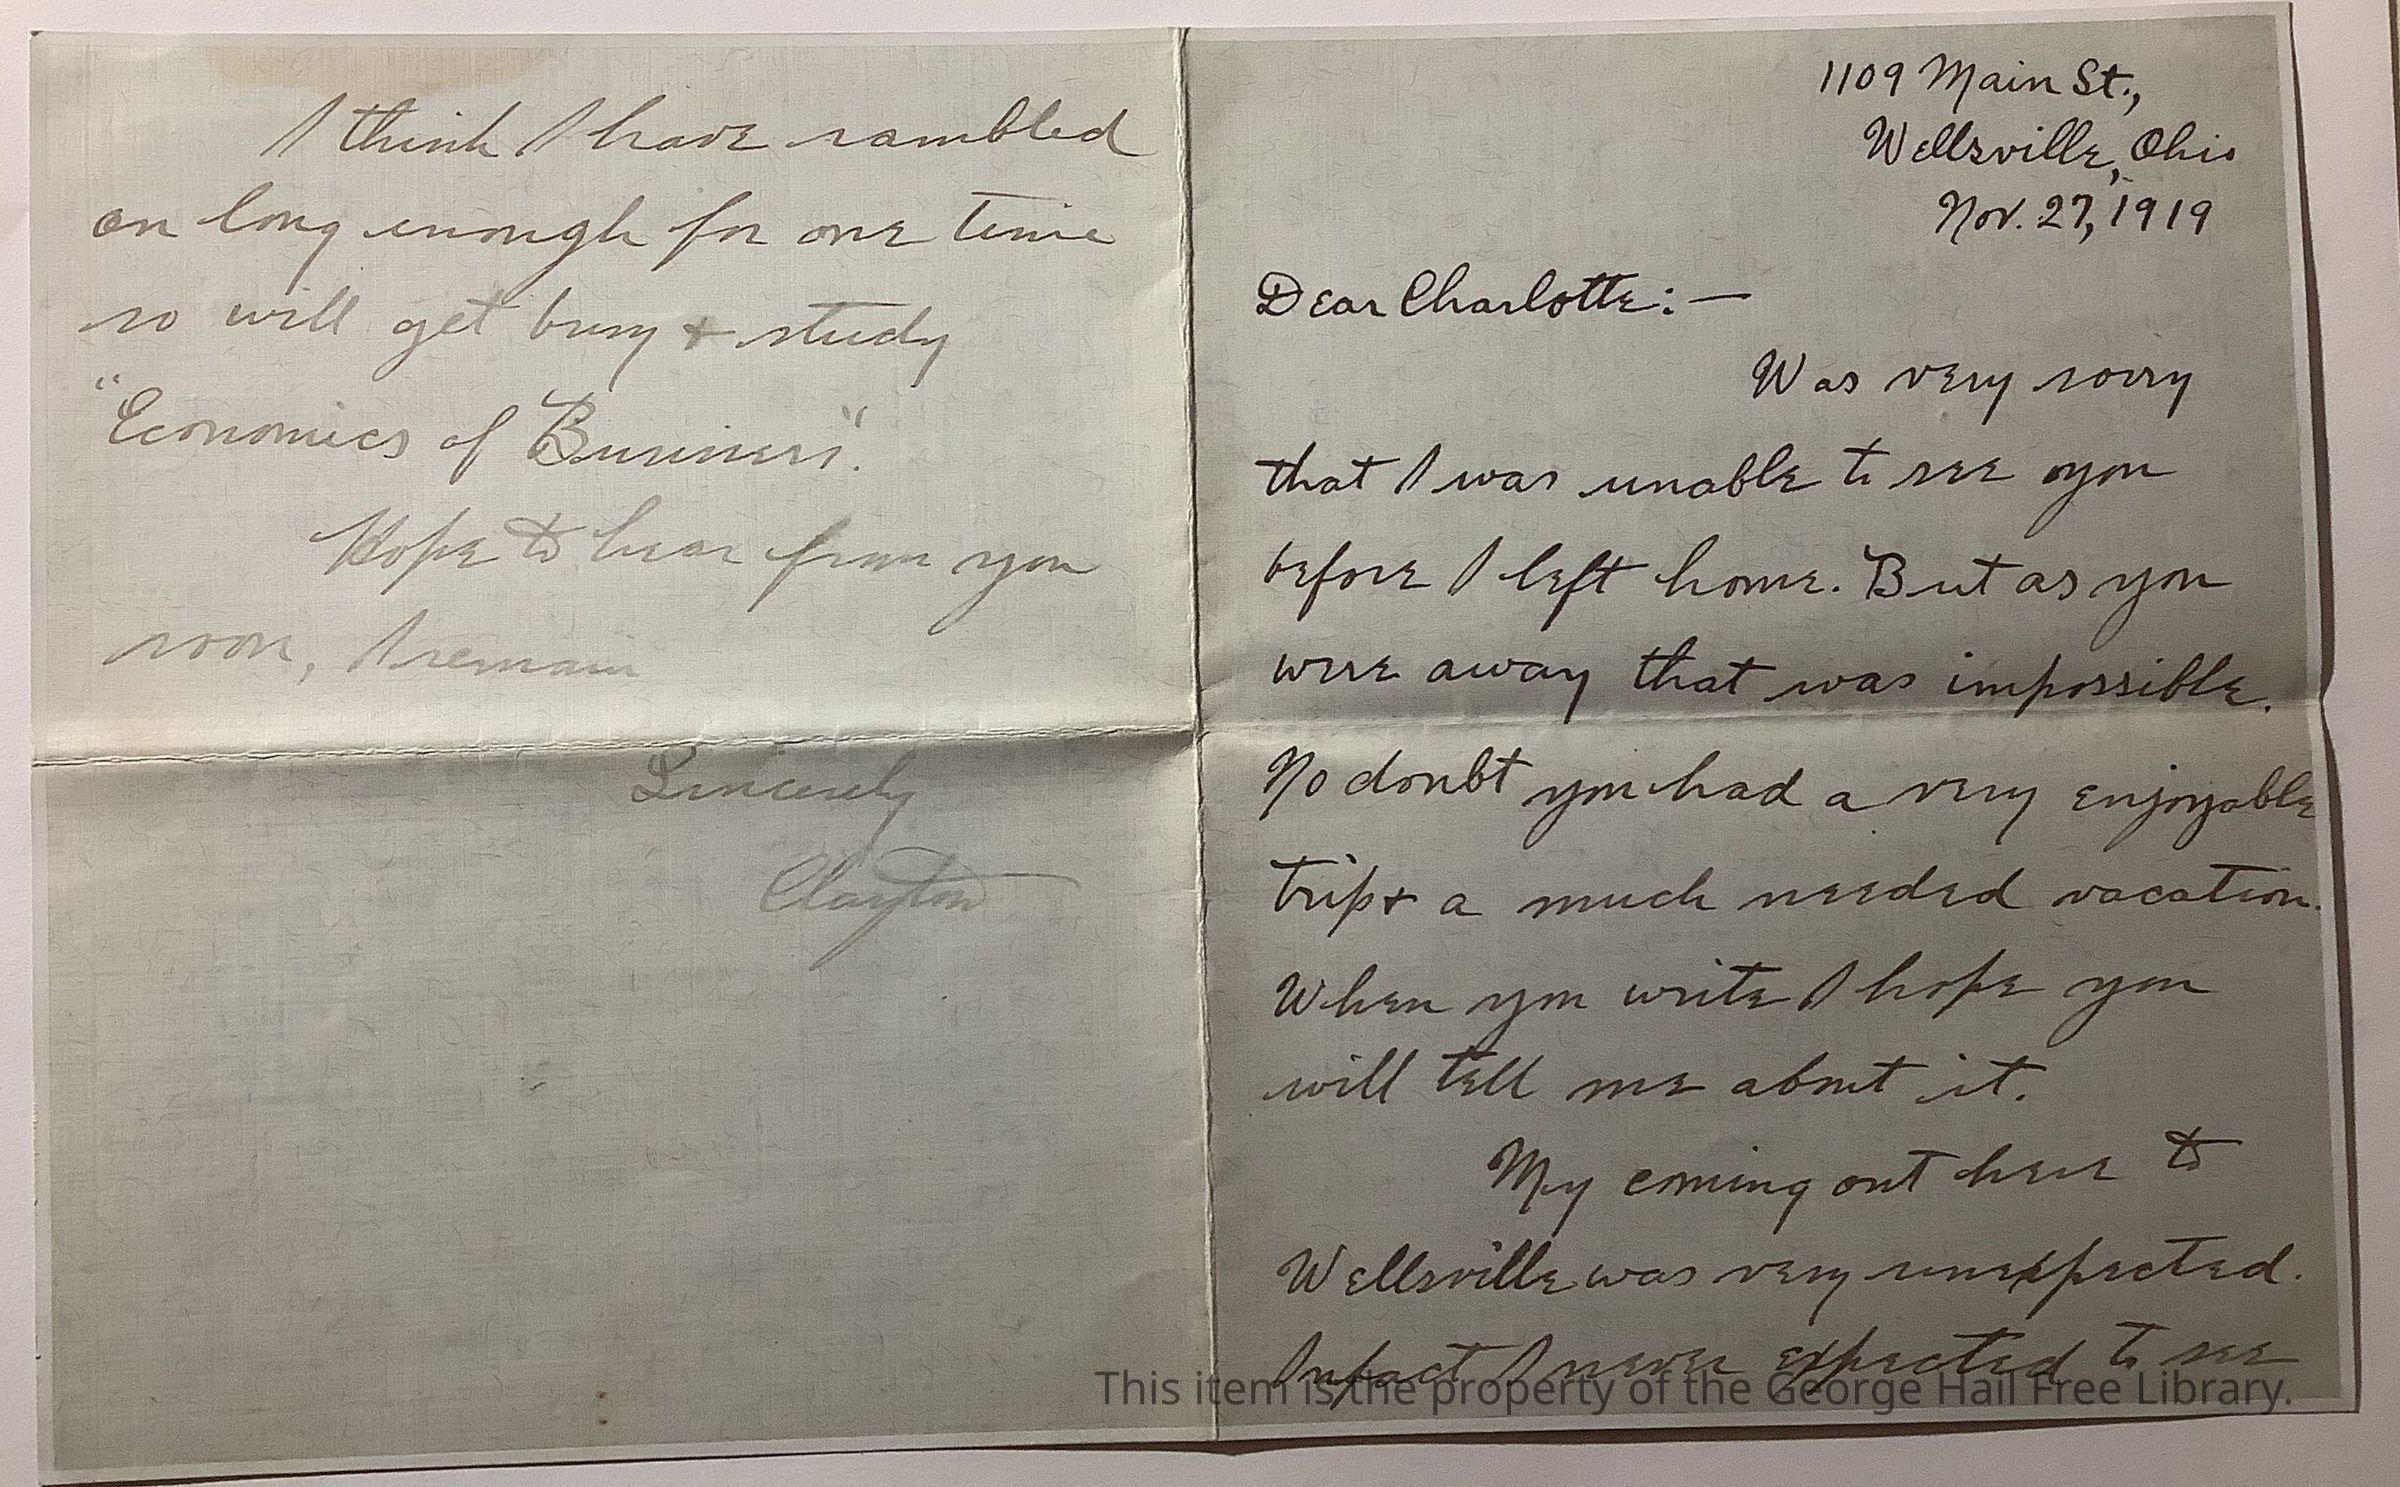 1109 Main St.,
Wellsville, Ohio
Nov. 27, 1919
Dear Charlotte: —
Was very sorry
that I was unable to see you
before I left home. But as you
were away that was impossible.
No doubt you had a very enjoyable
trip & a much needed vacation.
When you write I hope you
will tell me about it.
My coming out here to
Wellsville was very unexpected.
Infact I never expected to see
I think I have rambled
on long enough for one time
so will get busy & study
"Economics of Business".
Hope to hear from you
soon, I remain
Sincerely
Clayton
This item is the property of the George Hail Free Library.